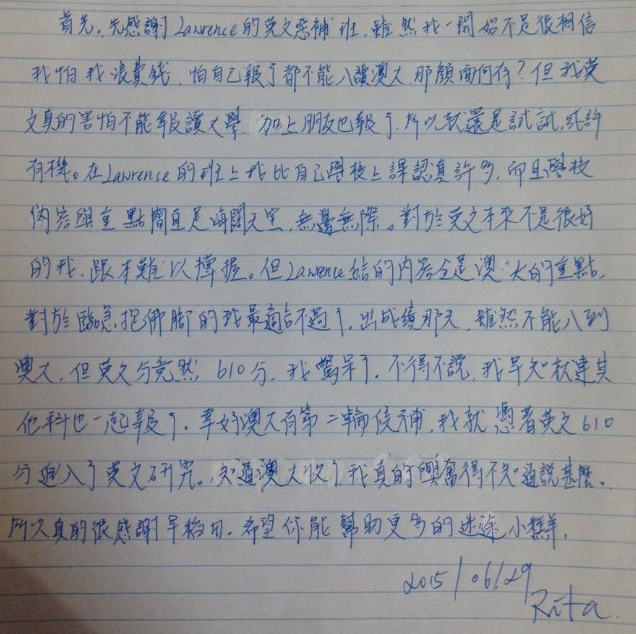 首先,先感謝Lawrence的英文惡補班,雖然我一開始不是很相信
我怕我浪費錢,怕自己報了都不能入讀澳大,那顏面何存?但我英
文真的害怕不能報讀大學,加上朋友也報了,所以就還是試試,或許
有機。在Lawrence的班上我比自己學校上課認真許多,而且學校
內容與重點簡直是海闊天空,無邊無際。對於英文本來不是很好
的我,跟本難以撑握。但Lawrence給的內容全是澳大的重點,
對於臨急抱佛腳的我最適合不過了。出成績那天,雖然不能入到
澳大,但英文分竟然610分,我驚呆了,不得不說,我早知就連其
他科也一起報了。幸好澳大有第二輪候補,我就憑著英文610
分進入了英文研究。知道澳大收了我真的興奮得不知道說甚麼。
所以真的很感謝早稻田,希望你能幫助更多的迷途小羊。
2015/06/29
Rita.